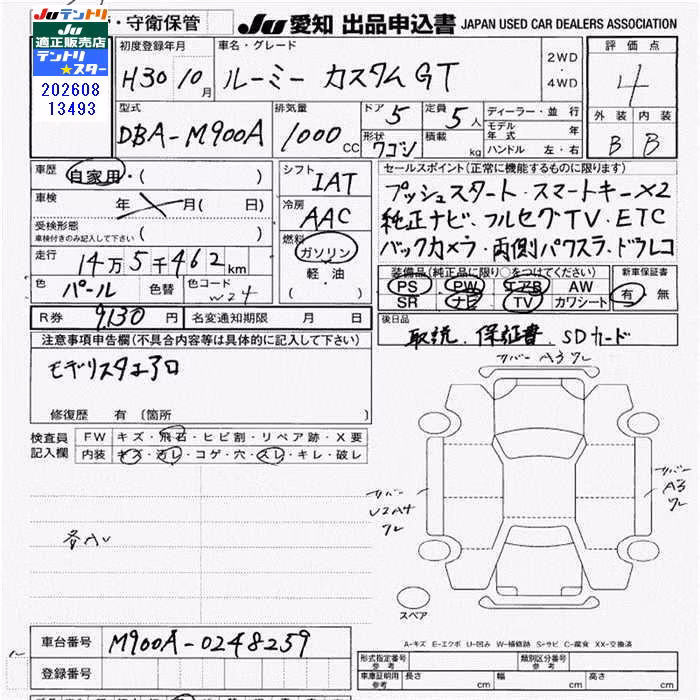 Juテントリ
適正販売店
テントリ
★スター
202608
13493
・守衛保管
Ju 愛知 出品申込書 JAPAN USED CAR DEALERS ASSOCIATION
初度登録年月 H30 10月
車名・グレード ルーミー カスタムGT
2WD・4WD
評価点 4
型式 DBA-M900A
排気量 1000 CC
ドア 5
定員 5人
形状 ワゴン
積載 kg
ディーラー・並行
モデル年式 年
ハンドル 左・右
外装 内装
B B
車歴 自家用・( )
車検 年 月( 日)
受検形態
車検付きのみ記入して下さい ( )
走行 14万5千462km
色 パール 色替 色コード W24
シフト IAT
冷房 AAC
燃料 ガソリン
軽油
( )
セールスポイント(正常に機能するものに限ります)
プッシュスタート・スマートキー×2
純正ナビ、フルセグTV・ETC
バックカメラ・両側パワスラ、ドラレコ
装備品(純正品に限り○をつけてください)
PS PW エアB AW
SR ナビ TV カワシート
新車保証書
有・無
R券 9,130円 名変通知期限 月 日
後日品 取説、保証書、SDカード
注意事項申告欄(不具合内容等は具体的に記入して下さい)
モデリスタエアロ
修復歴 有〔箇所 〕
検査員記入欄
FW キズ・飛石・ヒビ割・リペア跡・X要
内装 キズ・汚レ・コゲ・穴・スレ・キレ・破レ
リバー A3 ワレ
リバー
U2A4
ワレ
リバー
A3
ワレ
各AU
スペア
A-キズ E-エクボ U-凹み W-補修跡 S-サビ C-腐食 XX-交換済
車台番号 M900A-0248259
登録番号
形式指定番号 参考
類別区分番号 参考
車庫証明用 参考 長さ cm 幅 cm 高さ cm